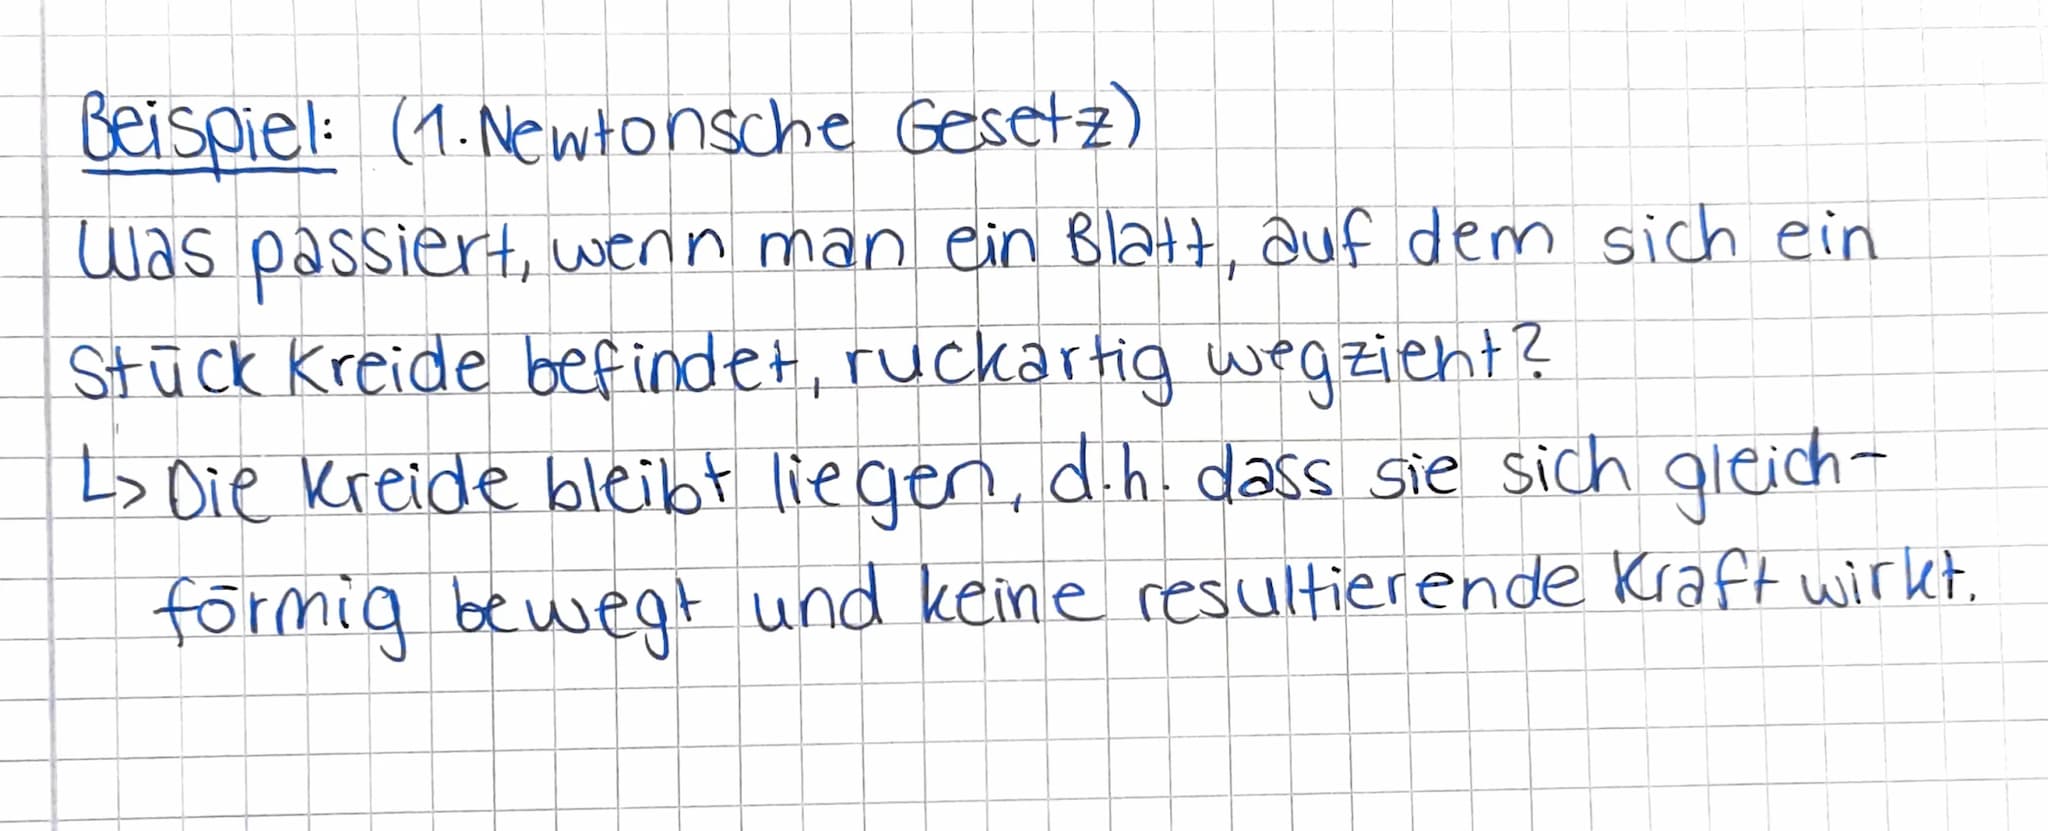 Beispiel: (1. Newtonsche Gesetz)
Was passiert, wenn man ein Blatt, auf dem sich ein
Stück Kreide befindet, ruckartig wegzieht?
↳ Die Kreide bleibt liegen, d.h. dass sie sich gleich-
förmig bewegt und keine resultierende Kraft wirkt.